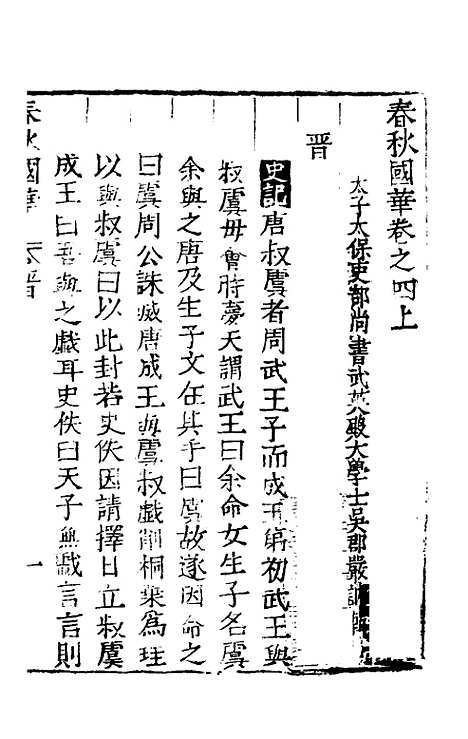 春秋國華卷之四上
太子太保吏部尚書武英殿大學士吳郡嚴訥
晋
史記唐叔虞者周武王子而成王弟初武王與
叔虞母會時夢天謂武王曰余命女生子名虞
余與之唐及生子文在其手曰虞故遂因命之
曰虞周公誅滅唐成王與虞叔戲削桐葉為珪
以與叔虞曰以此封若史佚因請擇日立叔虞
成王曰吾與之戲耳史佚曰天子無戲言言則
春秋國華 晋 一